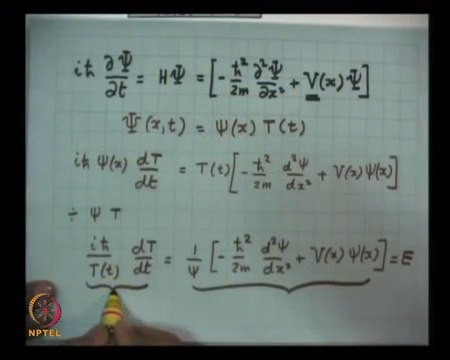 iħ ∂Ψ/∂t = HΨ = [-ħ²/2m ∂²Ψ/∂x² + V(x)Ψ]
Ψ(x,t) = ψ(x) T(t)
iħ ψ(x) dT/dt = T(t)[-ħ²/2m d²ψ/dx² + V(x)ψ(x)]
÷ ψ T
iħ/T(t) dT/dt = 1/ψ [-ħ²/2m d²ψ/dx² + V(x)ψ(x)] = E
NPTEL